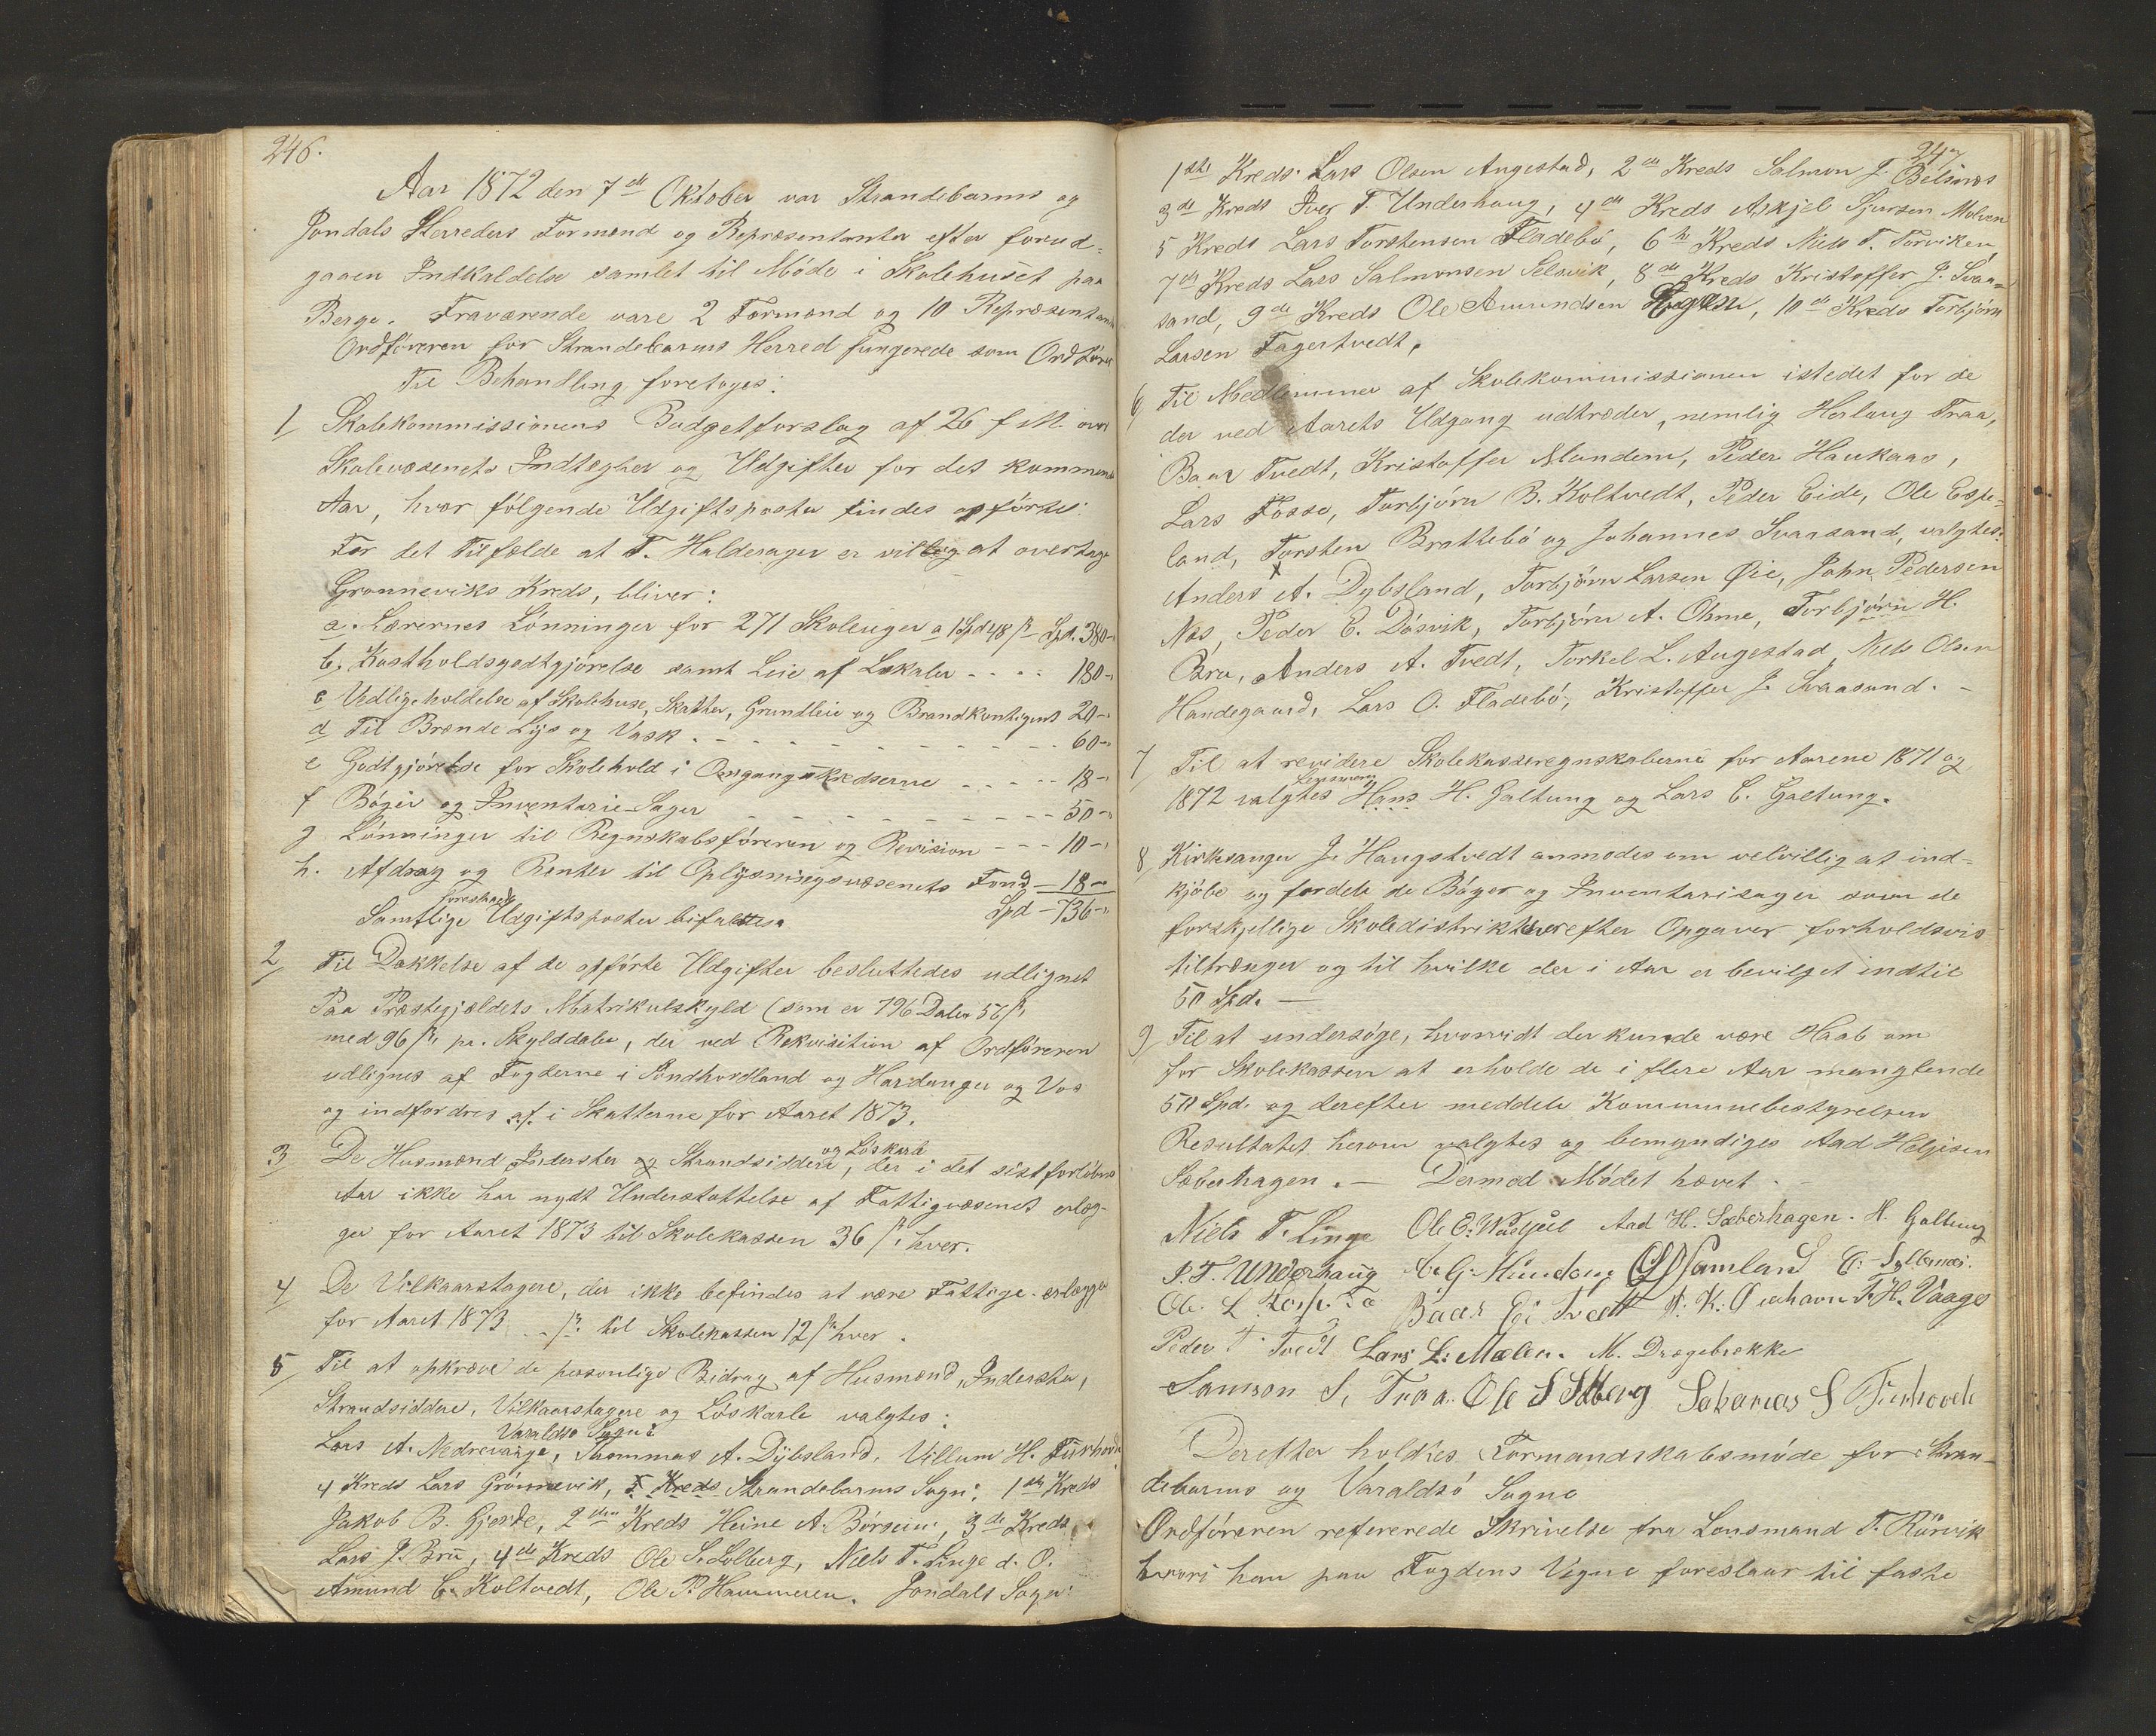 246.
Aar 1872 den 7de Oktober var Strandebarms og
Jondals Herreders Formænd og Repræsentanter efter forud-
gaaen Indkaldelse samlet til Møde i Skolehuset paa
Berge. Fraværende vare 2 Formænd og 10 Repræsentanter
Ordføreren for Strandebarms Herred fungerede som Ordfører
Til Behandling foretoges:
1 Skolekommissionens Budgetforslag af 26 f. M. over
Skolevæsenets Indtægter og Udgifter for det kommende
Aar, hvor følgende Udgiftsposter findes opførte:
For det Tilfælde at T. Haldesager er villig at overtage
Grønneviks Kreds, bliver:
a. Lærernes Lønninger for 271 Skoleuger a 1 Spd 48 s - Spd. 380-"
b. Kostholdsgodtgjørelse samt Leie af Lokaler - - - - 180-"
c Vedligeholdelse af Skolehuse, Skatter, Grundleie og Brandkontigent 20-"
d Til Brænde Lys og Vask - - - - - - - - - 60-"
e Godtgjørelse for Skolehold i Omgangskredserne - - - - 18-"
f Bøger og Inventarie-Sager - - - - - - - - 50-"
g Lønninger til Regnskabsføreren og Revision - - - 10-"
h. Afdrag og Renter til Oplysningsvæsenets Fond - 18-"
Spd - 736-"
Samtlige foreslaaede Udgiftsposter bifaldtes.
2 Til Dækkelse af de opførte Udgifter besluttedes udlignet
Paa Præstegjældets Matrikulskyld (som er 796 Daler 56 s.
med 96 s. pr. Skylddaler, der ved Rekvisition af Ordføreren
udlignes af Fogderne i Søndhordland og Hardanger og Vos
og indfordres af i Skatterne for Aaret 1873.
3 De Husmænd Inderster og Strandsiddere og Løskarle, der i det sistforløbne
Aar ikke har nydt Understøttelse af Fattigvæsenet erlæg-
ger for Aaret 1873 til Skolekassen 36 s. hver.
4 De Vilkaarstagere, der ikke befindes at være Fattige erlægger
for Aaret 1873 til Skolekassen 12 s hver.
5 Til at opkræve de personlige Bidrag af Husmænd, Inderster,
Strandsiddere, Vilkaarstagere og Løskarle valgtes:
Varaldsø Sogn:
Lars A. Nedrevaage, Thommas A. Dybsland, Villum H. Furhovde
4 Kreds Lars Grønnevik, Strandebarms Sogn: 1ste Kreds
Jakob B. Gjerde, 2den Kreds Heine A. Børsein, 3de Kreds
Lars J. Bru, 4de Kreds Ole S. Solberg, Niels T. Linge d. O.
Amund E. Koltvedt, Ole P. Hammeren. Jondals Sogn:
247
1ste Kreds Lars Olsen Augestad, 2den Kreds Salmon J. Belsnes
3de Kreds Iver T. Underhaug, 4de Kreds Askjel Sjursen Molven
5 Kreds Lars Torstensen Fladebø, 6te Kreds Niels T. Torviken,
7de Kreds Lars Salmonsen Selsvik, 8de Kreds Kristoffer J. Svaa-
sand, 9de Kreds Ole Amundsen, 10de Kreds Torbjørn
Larsen Fagertvedt.
6 Til Medlemmer af Skolekommissionen istedet for de
der ved Aarets Udgang udtræder, nemlig Herlaug Traa,
Baar Tvedt, Kristoffer Mundem, Peder Haukaas,
Lars Fosse, Torbjørn B. Koltvedt, Peder Eide, Ole Espe-
land, Torsten Brattebø og Johannes Svaasand, valgtes:
Anders A. Dybsland, Torbjørn Larsen Øie, John Pedersen
Næs, Peder E. Døsvik, Torbjørn A. Ohme, Torbjørn H.
Bru, Anders A. Tvedt, Torkel L. Augestad, Niels Olsen
Handegaard, Lars O. Fladebø, Kristoffer J. Svaasand. -
7 Til at revidere Skolekasseregnskaberne for Aarene 1871 og
1872 valgtes Lensmann Hans H. Galtung og Lars E. Galtung.
8 Kirkesanger J. Haugstvedt anmodes om velvillig at ind-
kjøbe og fordele de Bøger og Inventariesager som de
forskjellige Skoledistrikter efter Opgaver forholdsvis
tiltrænger og til hvilke der i Aar er bevilget indtil
50 Spd. -
9 Til at undersøge, hvorvidt der kunde være Haab om
for Skolekassen at erholde de i flere Aar manglende
50 Spd. og derefter meddele Kommunebestyrelsen
Resultatet herom valgtes og bemyndiges Aad Helgesen
Sæberhagen. - Dermed Mødet hævet. -
Niels T. Linge Aad H. Sæberhagen. H. Galtung
I. T. Underhaug
Baar Tvedt T. H. Vaage
Peder T. Tvedt Lars L. Mælen. M. Drægebrække
Samson S. Traa. Ole S Solberg Sakarias S Furhovde
Derefter holdtes Formandskabsmøde for Stran-
debarms og Varaldsø Sogne
Ordføreren refererede Skrivelse fra Lensmand T. Rørvik
hvori han paa Fogdens Vegne foreslaar til faste